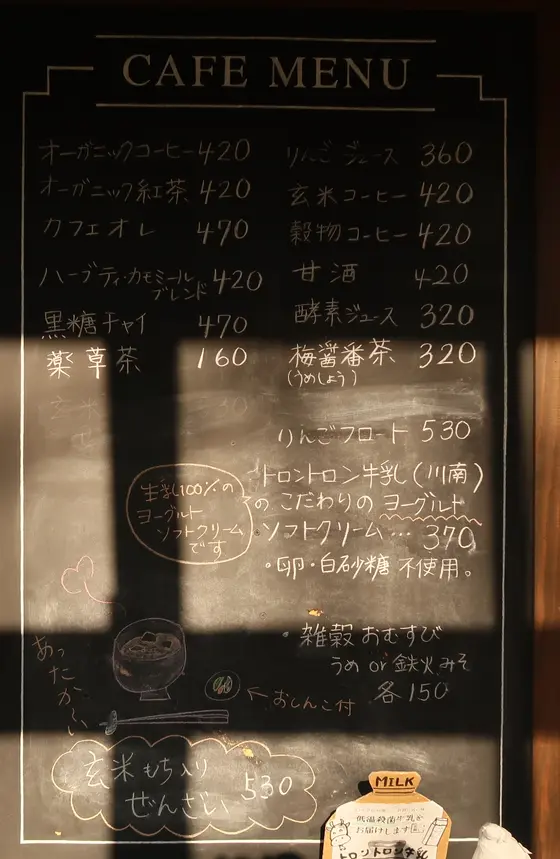 CAFE MENU
オーガニックコーヒー 420
オーガニック紅茶 420
カフェオレ 470
ハーブティ・カモミール
ブレンド 420
黒糖チャイ 470
薬草茶 160
玄米
30
りんごジュース 360
玄米コーヒー 420
穀物コーヒー 420
甘酒 420
酵素ジュース 320
梅醤番茶 320
(うめしょう)
りんごフロート 530
トロントロン牛乳(川南)
のこだわりのヨーグルト
ソフトクリーム… 370
・卵・白砂糖不使用。
生乳100%の
ヨーグルト
ソフトクリーム
です
・雑穀おむすび
うめ or 鉄火みそ
各150
あったか〜い
おしんこ付
玄米もち入り
ぜんざい 530
MILK
低温殺菌牛乳が
お届けします
トロントロン牛乳